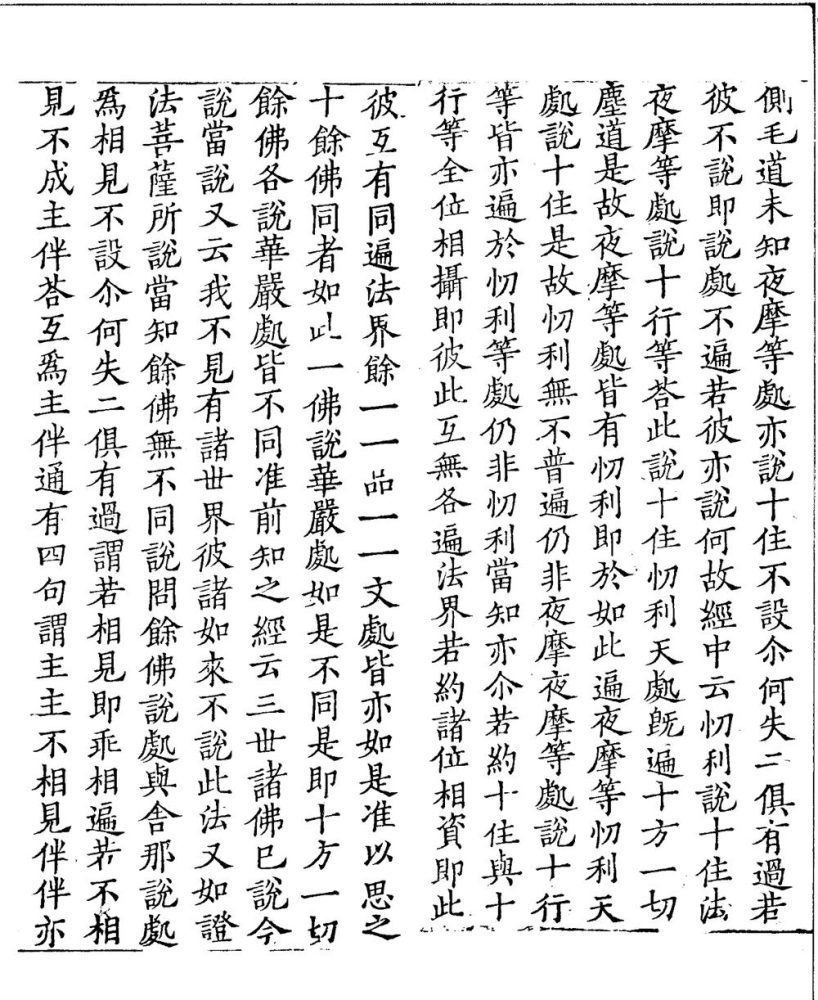 側毛道未知夜摩等處亦說十住不設尒何失二俱有過若
彼不說即說處不遍若彼亦說何故經中云忉利說十住法
夜摩等處說十行等荅此說十住忉利天處既遍十方一切
塵道是故夜摩等處皆有忉利即於如此遍夜摩等忉利天
處說十住是故忉利無不普遍仍非夜摩夜摩等處說十行
等皆亦遍於忉利等處仍非忉利當知亦尒若約十住與十
行等全位相攝即彼此互無各遍法界若約諸位相資即此
彼互有同遍法界餘一一品一一文處皆亦如是准以思之
十餘佛同者如此一佛說華嚴處如是不同是即十方一切
餘佛各說華嚴處皆不同准前知之經云三世諸佛已說今
說當說又云我不見有諸世界彼諸如來不說此法又如證
法菩薩所說當知餘佛無不同說問餘佛說處與舍那說處
爲相見不設尒何失二俱有過謂若相見即乖相遍若不相
見不成主伴荅互爲主伴通有四句謂主主不相見伴伴亦